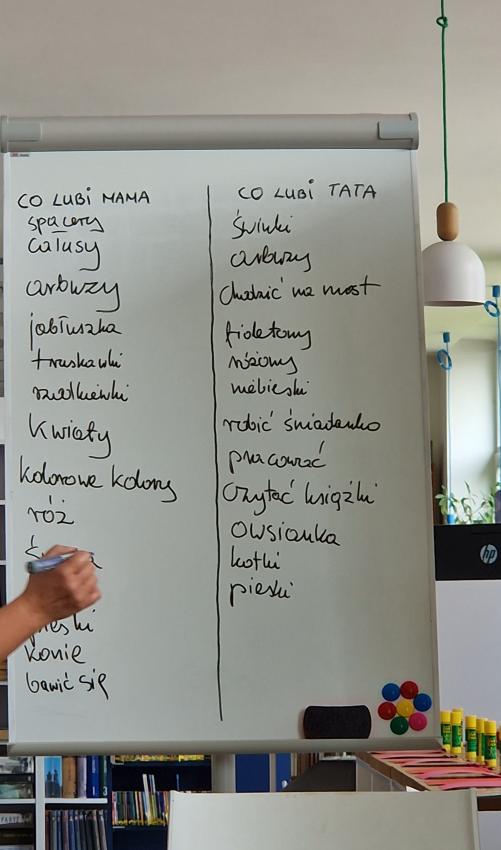 CO LUBI MAMA
spacery
całusy
arbuzy
jabłuszka
truskawki
rzodkiewki
kwiaty
kolorowe kolory
róż
pieski
konie
bawić się
CO LUBI TATA
świnki
arbuzy
chodzić na most
fioletowy
różowy
niebieski
robić śniadanko
pracować
czytać książki
owsianka
kotki
pieski
hp